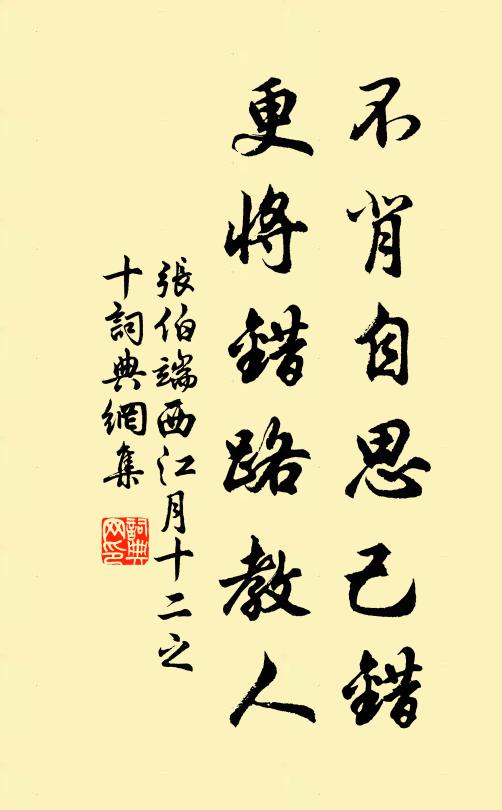 不肯自思己錯
更將錯路教人
張伯端西江月十二之
十詞典網集
詞典
网印